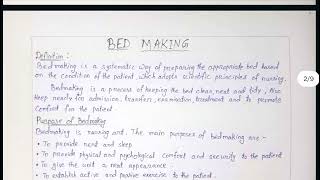 BED MAKING
Definition :
Bedmaking is a systematic way of preparing the appropriate bed based
on the condition of the patient, which adopts scientific principles of nursing.
Bedmaking is a process of keeping the bed clean, neat and tidy. Also
keep ready for admission, transfer, examination, treatment and to promote
comfort for the patient.
Purpose of Bedmaking
Bedmaking is nursing art. The main purposes of bedmaking are -
• To provide rest and sleep
• To provide physical and psychological comfort and security to the patient
• To give the unit a neat appearance.
• To establish active and passive exercise to the patient.
2/9